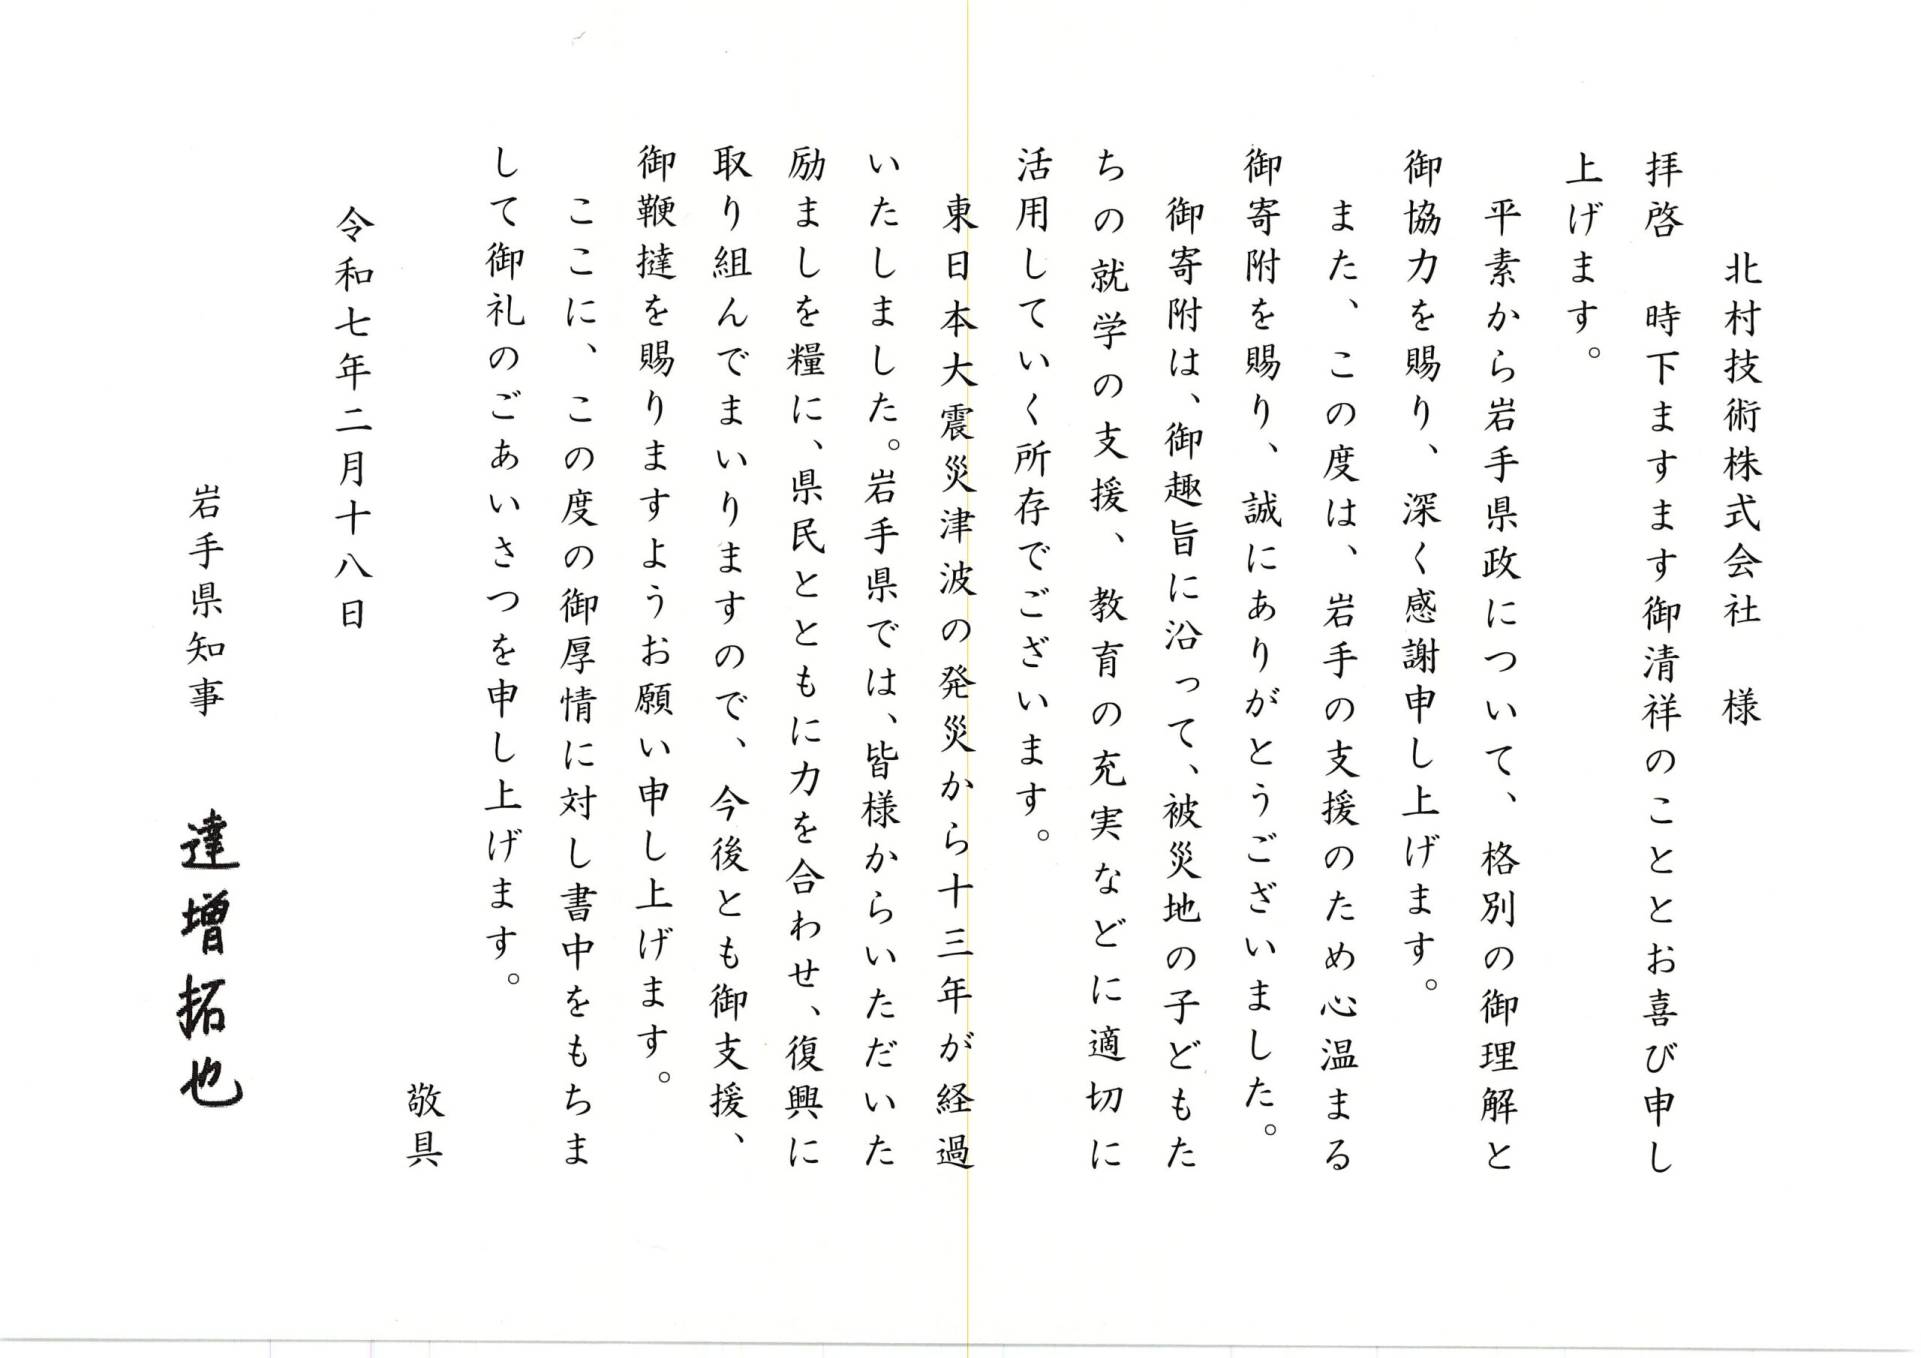 北村技術株式会社　様
拝啓　時下ますます御清祥のこととお喜び申し
上げます。
平素から岩手県政について、格別の御理解と
御協力を賜り、深く感謝申し上げます。
また、この度は、岩手の支援のため心温まる
御寄附を賜り、誠にありがとうございました。
御寄附は、御趣旨に沿って、被災地の子どもた
ちの就学の支援、教育の充実などに適切に
活用していく所存でございます。
東日本大震災津波の発災から十三年が経過
いたしました。岩手県では、皆様からいただいた
励ましを糧に、県民とともに力を合わせ、復興に
取り組んでまいりますので、今後とも御支援、
御鞭撻を賜りますようお願い申し上げます。
ここに、この度の御厚情に対し書中をもちま
して御礼のごあいさつを申し上げます。
敬具
令和七年二月十八日
岩手県知事　達増拓也